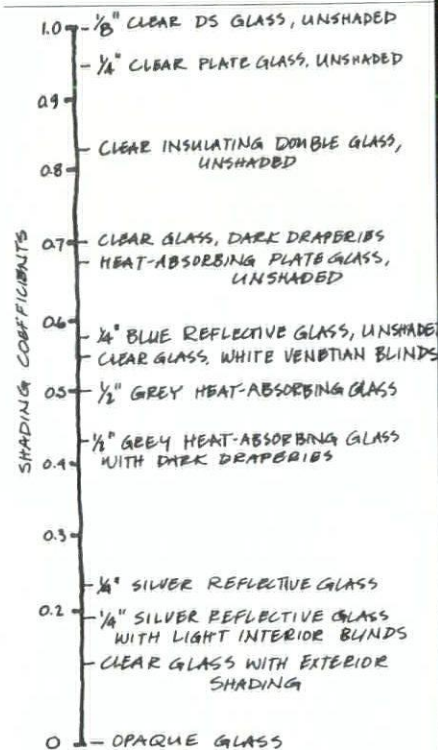 1.0 - 1/8" CLEAR DS GLASS, UNSHADED
- 1/4" CLEAR PLATE GLASS, UNSHADED
0.9
- CLEAR INSULATING DOUBLE GLASS,
UNSHADED
0.8
SHADING COEFFICIENTS
0.7 - CLEAR GLASS, DARK DRAPERIES
HEAT-ABSORBING PLATE GLASS,
UNSHADED
0.6
1/4" BLUE REFLECTIVE GLASS, UNSHADED
CLEAR GLASS, WHITE VENETIAN BLINDS
0.5 - 1/2" GREY HEAT-ABSORBING GLASS
1/2" GREY HEAT-ABSORBING GLASS
WITH DARK DRAPERIES
0.4
0.3
1/4" SILVER REFLECTIVE GLASS
0.2
1/4" SILVER REFLECTIVE GLASS
WITH LIGHT INTERIOR BLINDS
CLEAR GLASS WITH EXTERIOR
SHADING
0 - OPAQUE GLASS